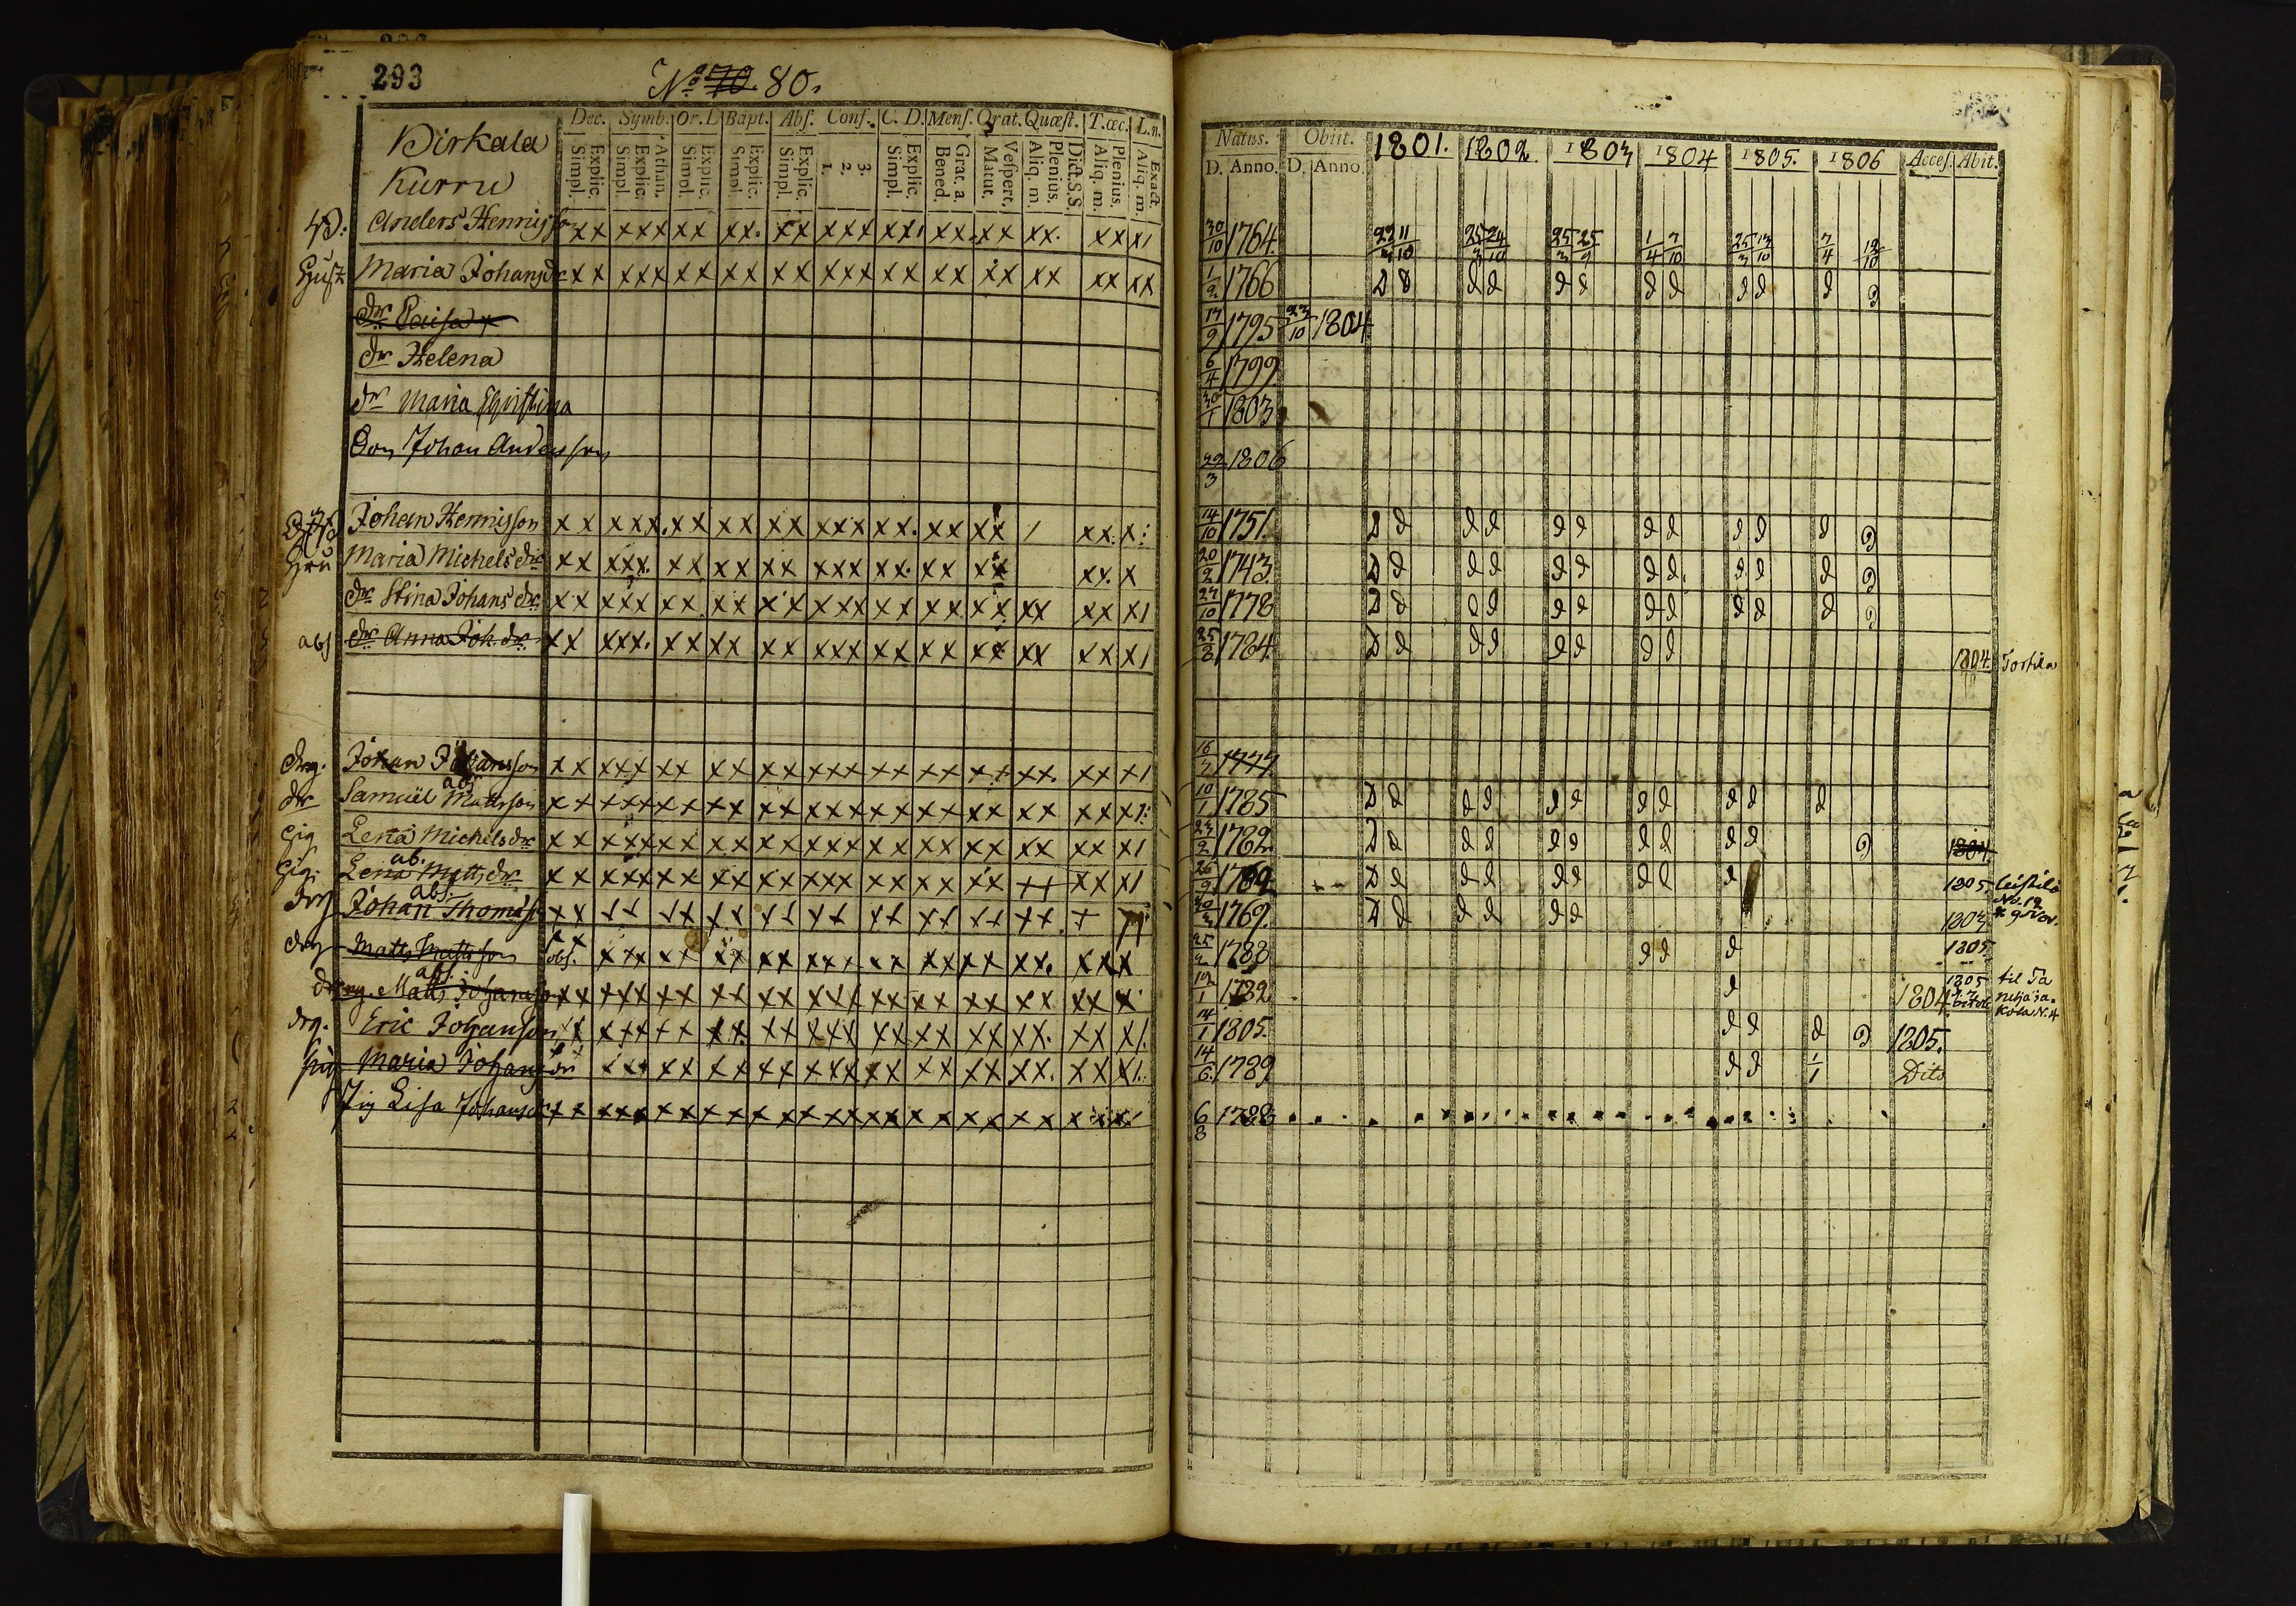 293
No 70 80.
Birkala
Kurru
Dec. Symb. Or. L Bapt. Abs. Conf. C. D. Mens. Orat. Quæst. T. œc. L. n.
Explic. Simpl. Athan. Explic. Simpl. Explic. Simpl. Explic. Simpl. Explic. Simpl. 3. 2. 1. Explic. Simpl. Grat. a. Bened. Vespert. Matut. Dict. S. S. Plenius. Aliq. m. Plenius. Aliq. m. Exact. Aliq. m.
Natus. Obiit. 1801. 1802. 1803 1804 1805. 1806 Acces. Abit.
D. Anno. D. Anno.
Anders Henrigsson xx xxx xx xx. xx xxx xx. xx. xx xx. xx x1 30/10 1764 22/3 11/10 25/3 24/10 25/3 25/9 1/4 7/10 25/3 13/10 7/4 12/10
Hust Maria Johansdr xx xxx xx xx xx xxx xx xx xx xx xx xx 1/2 1766 D D d d d d d d d d d d
dr Caisa 17/9 1795 23/10 1804
dr Helena 6/4 1799
dr Maria Christina 30/1 1803
Son Johan Andersson 22/3 1806
Johan Henrigsson xx xxx. xx xx xx xxx xx. xx xx 1 xx. x: 14/10 1751. D d d d d d d d d d d d
Hru Maria Michelsdr xx xxx. xx xx xx xxx xx. xx xx xx. x 20/2 1743 D d d d d d d d d d d d
dr Stina Johans dr xx xxx xx xx xx xxx xx xx xx xx xx x1 27/10 1778 D d d d d d d d d d d d
abs dr Anna Joh. dr xx xxx. xx xx xx xxx xx xx xx xx xx x1 25/8 1784 D d d d d d d d 1804. Tortila
drg. Johan Johansson xx xxx xx xx xx xxx xx xx xx xx. xx x1 16/7 1777
abs
dr Samuel Mattsson xx xxx xx xx xx xxx xx xx xx xx xx x1: 10/1 1785 D d d d d d d d d d d
Pig Lena Michelsdr xx xxx xx xx xx xxx xx xx xx xx xx x1 23/2 1782 D d d d d d d d d d d 1804
ab.
Pig. Lena Matts dr xx xxx xx xx xx xxx xx xx xx xx xx x1 26/9 1782 D d d d d d d d d 1805 Leistilä
No. 12
abs.
drg Johan Thomasson 20/3 1769. D d d d d d 1803
drg Matts Mattsson xx abs. xxx xx xx xx xxx xx xx xx xx. xx x 25/2 1788 d d d 1805.
abs.
drng. Matts Johansson xx xxx xx xx xx xxx xx xx xx xx xx x 19/1 1782 d 1804 1805 til Ta
drg. Eric Johansson xx xxx xx xx xx xxx xx xx xx xx. xx x1 14/1 1805. d d d d 1805.
pig Maria Johansdr xxx xx xx xx xxx xx xx xx xx. xx x1. 14/6 1789 d d 1/1 Dito
Pig Lisa Johansdr xx xxx xx xx xx xxx xx xx xx xx x 6/8 1788